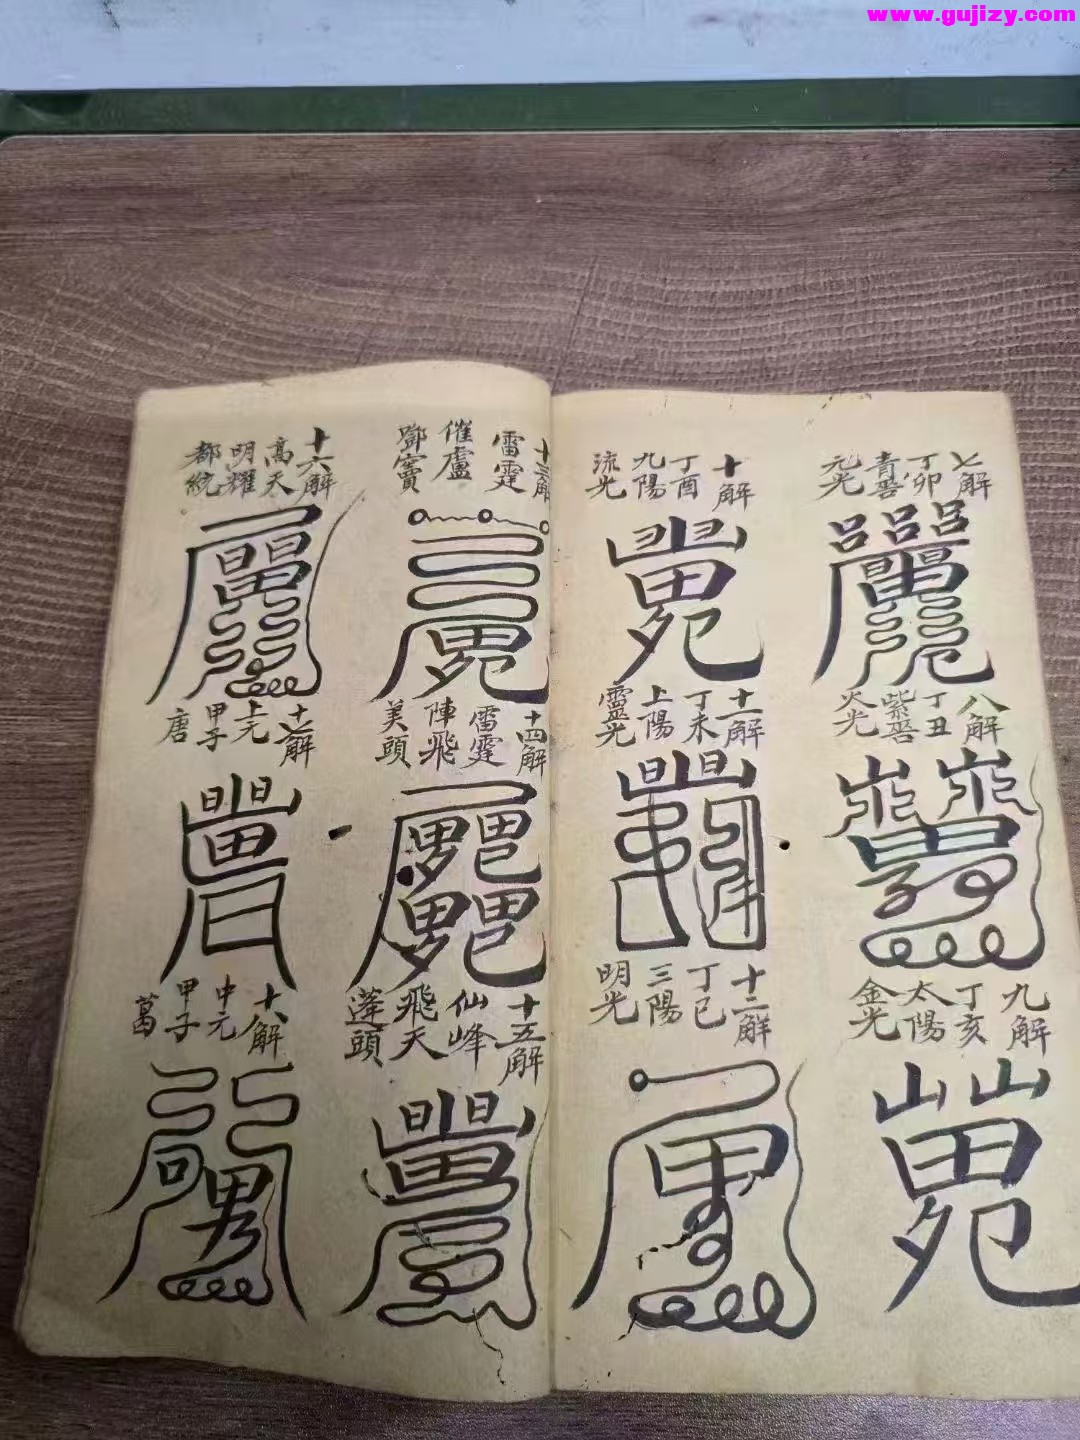 www.gujizy.com
七解
丁卯
青善
元光
八解
丁丑
紫善
火光
九解
丁亥
太陽
金光
十解
丁酉
九陽
流光
十一解
丁未
上陽
靈光
十二解
丁巳
三陽
明光
十三解
雷霆
催盧
鄧竇
十四解
雷霆
陣飛
美頭
十五解
仙峰
飛天
蓬頭
十六解
高天
明耀
都統
十七解
上元
甲子
唐
十八解
中元
甲子
葛